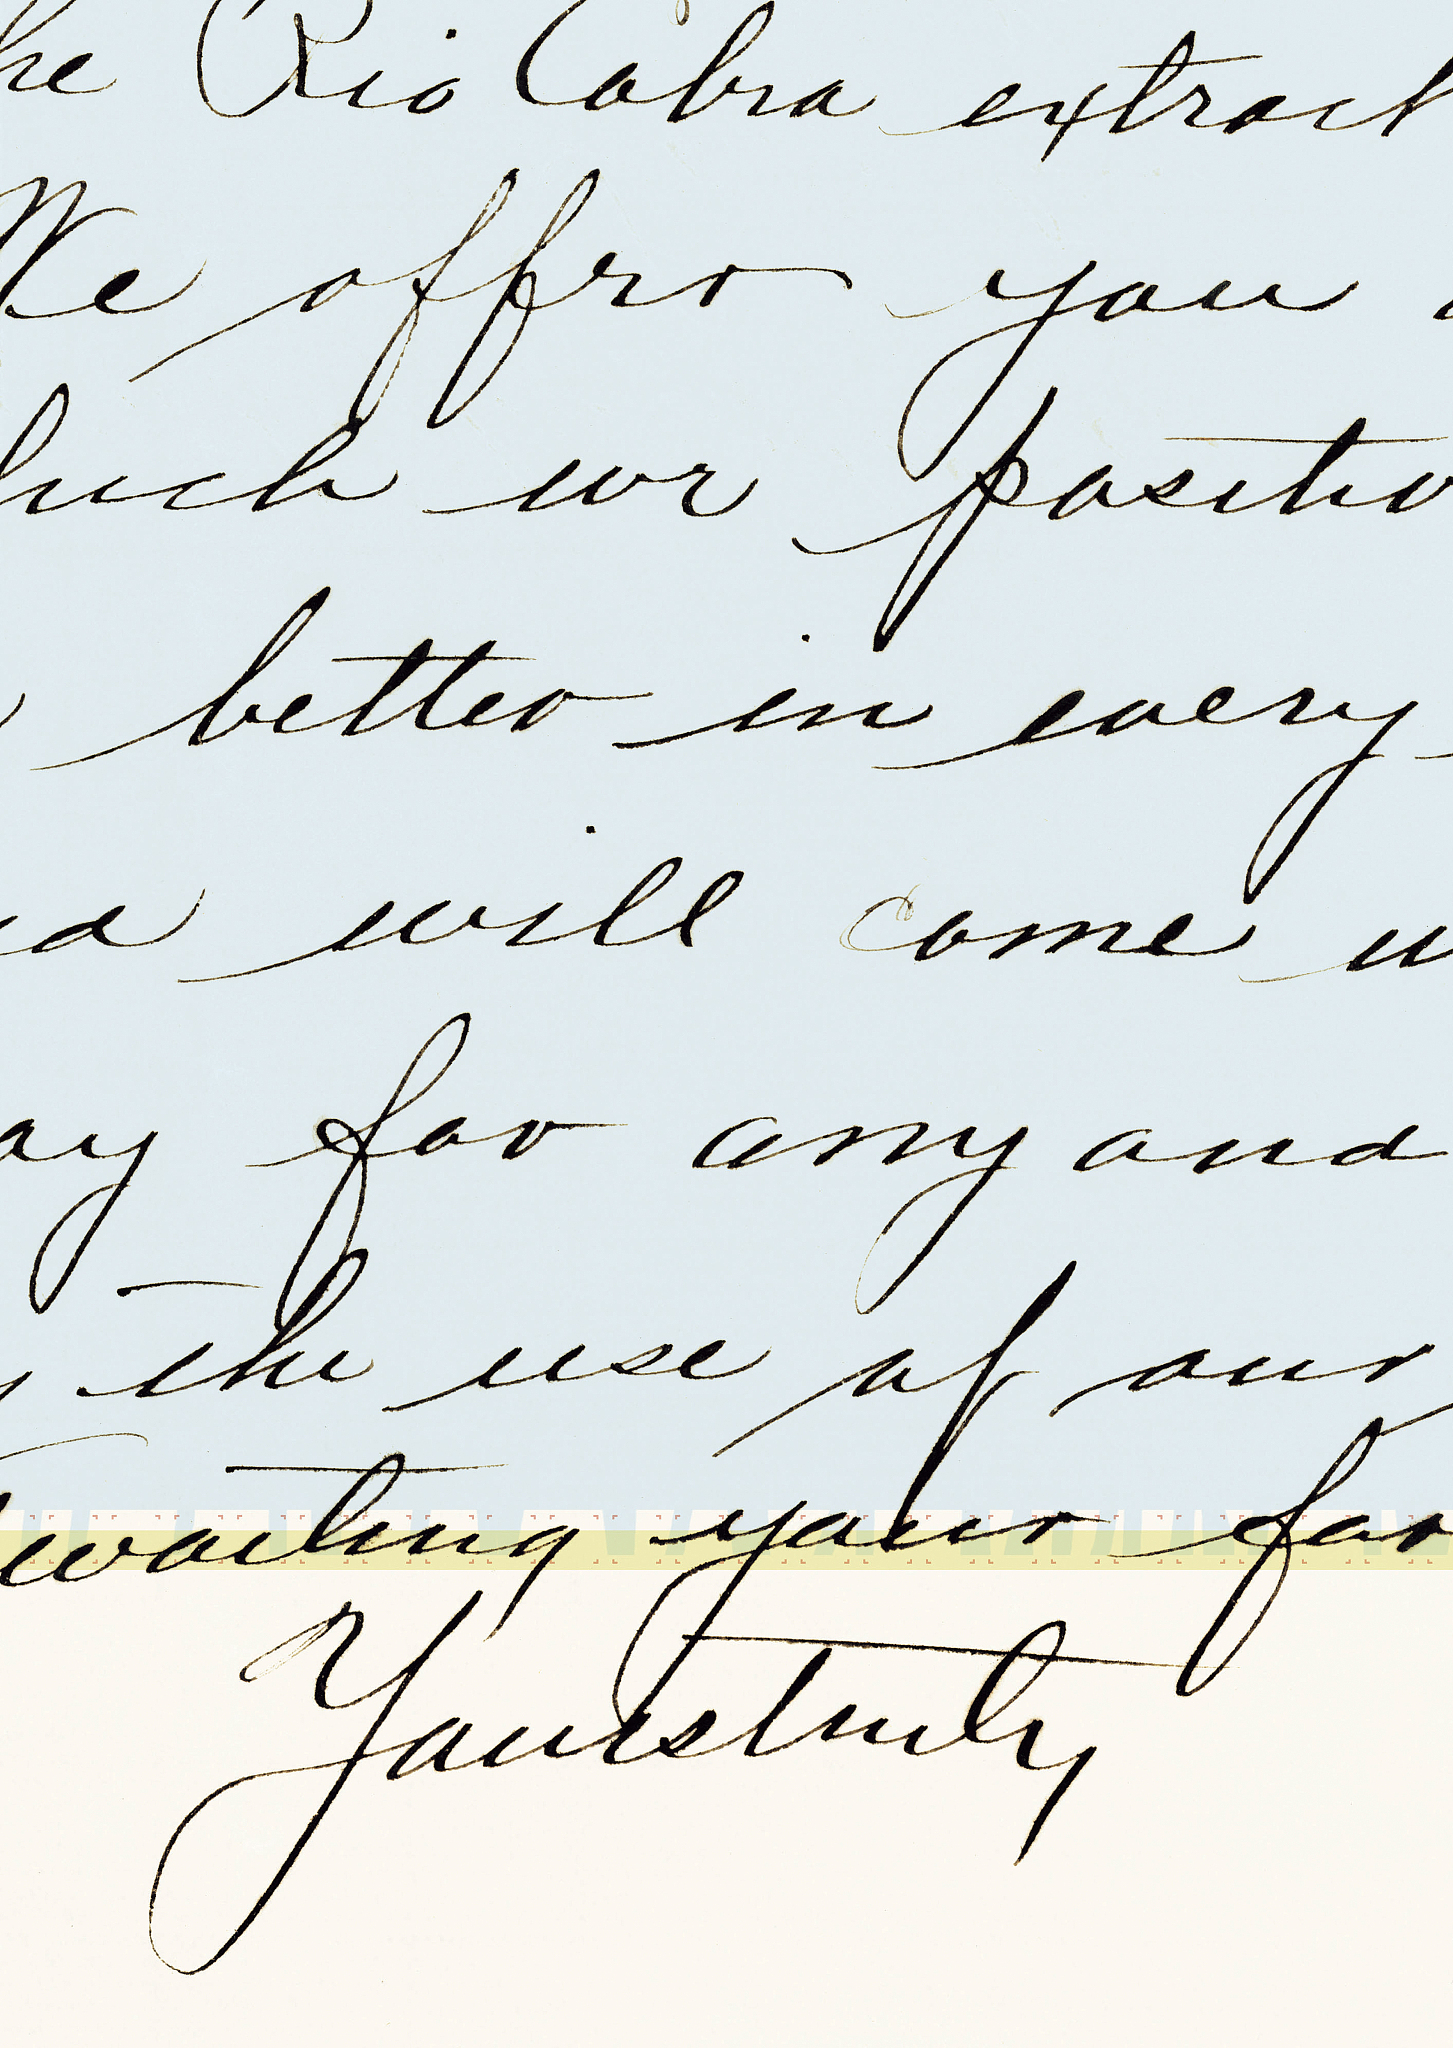 he Rio Cobra extract
We offer you a
hich we positiv
better in every
nd will come u
ay for any and
the use of our
waiting your fav
Yours truly